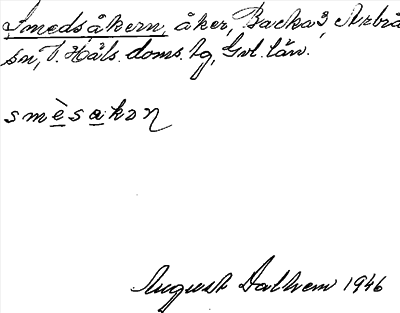 Smedsåkern, åker, Backa 3, Arbrå
sn, V. Häls. doms. lg, Gvl. län.
smèsakon
August Dalhem 1946